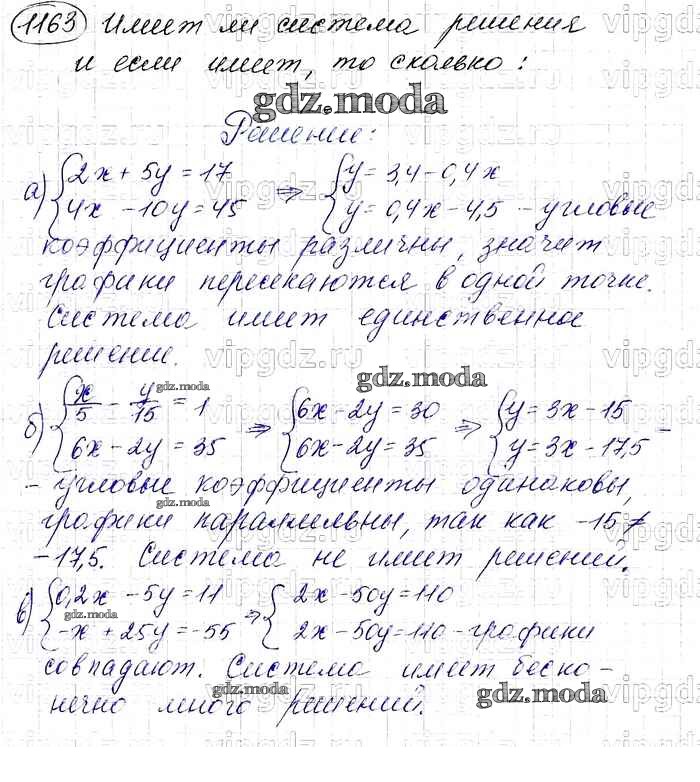 1163 Имеет ли система решения
и если имеет, то сколько:
gdz.moda
Решение:
а) {2x + 5y = 17 ⇒ {y = 3,4 - 0,4x
{4x - 10y = 45 {y = 0,4x - 4,5 - угловые
коэффициенты различны, значит
графики пересекаются в одной точке.
Система имеет единственное
решение.
vipgdz.ru
gdz.moda
б) {x/5 - y/15 = 1 ⇒ {6x - 2y = 30 ⇒ {y = 3x - 15
gdz.moda
{6x - 2y = 35 {6x - 2y = 35 {y = 3x - 17,5 -
- угловые коэффициенты одинаковы,
gdz.moda
графики параллельны, так как -15 ≠
-17,5. Система не имеет решений.
в) {0,2x - 5y = 11 ⇒ {2x - 50y = 110
gdz.moda
{-x + 25y = -55 {2x - 50y = 110 - графики
совпадают. Система имеет беско-
нечно много решений.
gdz.moda
gdz.moda